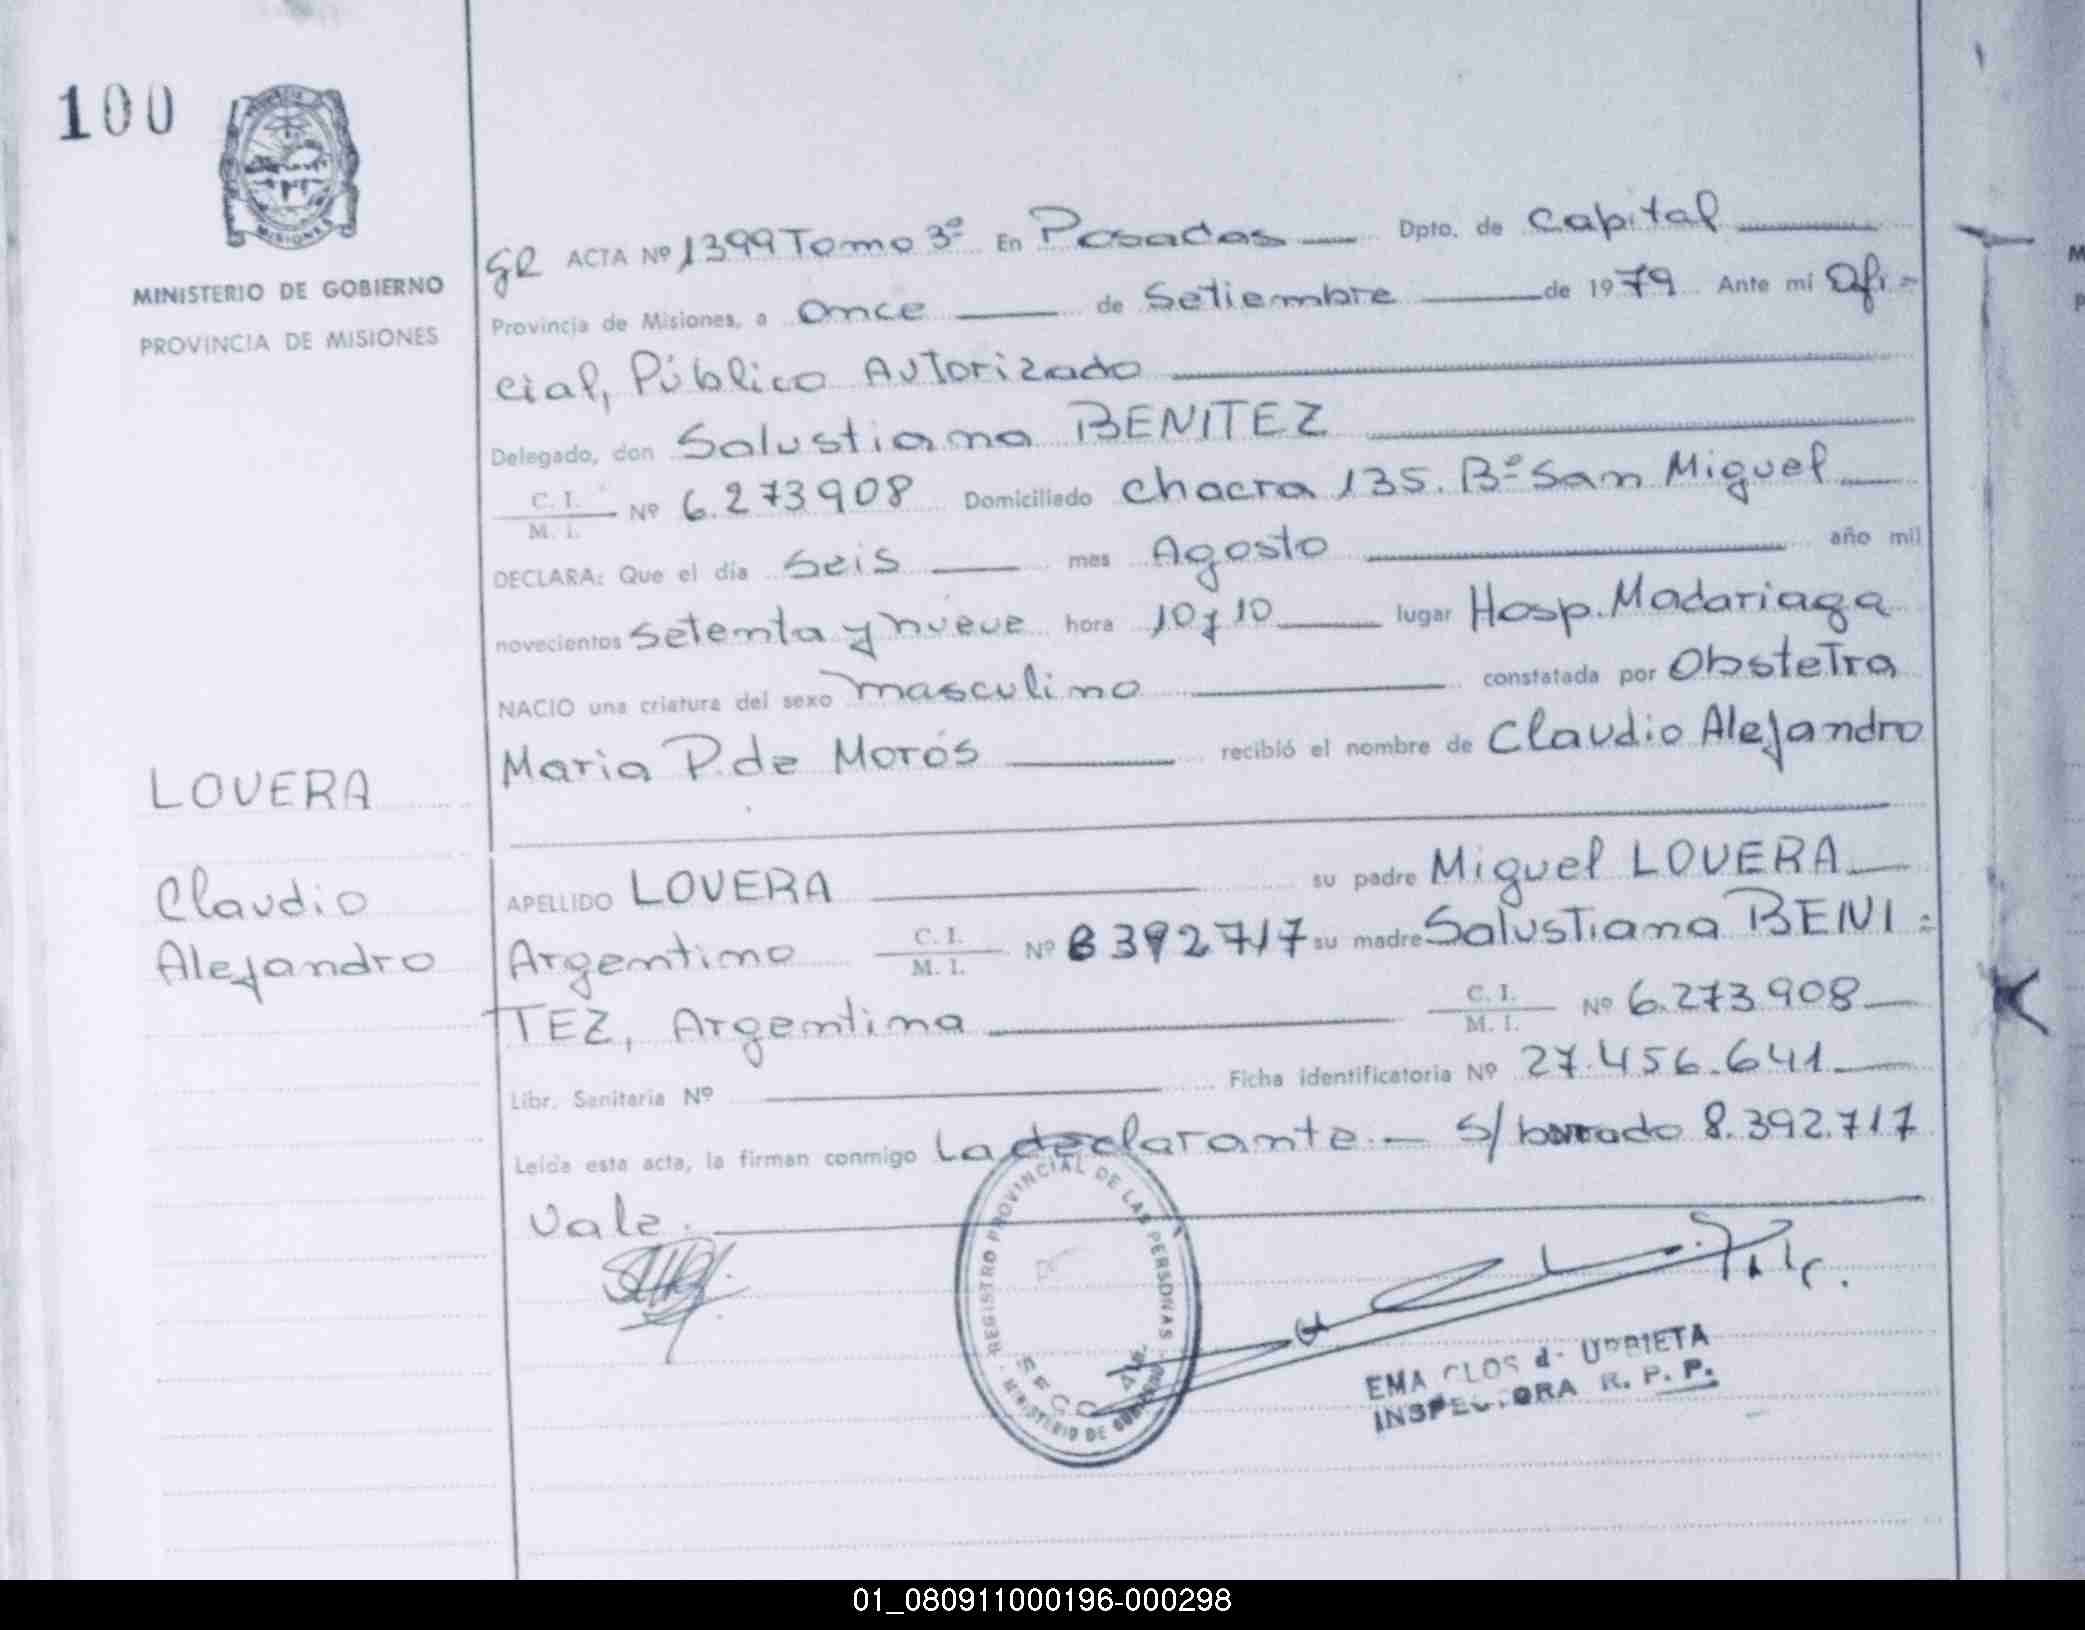 100
MISIONES
MINISTERIO DE GOBIERNO
PROVINCIA DE MISIONES
LOVERA
Claudio
Alejandro
GR ACTA Nº 1399 Tomo 3º En Posadas Dpto. de Capital
Provincia de Misiones, a Once de Setiembre de 1979 Ante mí Ofi=
cial, Público Autorizado
Delegado, don Salustiana BENITEZ
C. I. / M. I. Nº 6.273908 Domiciliado Chacra 135. Bº San Miguel
DECLARA: Que el día Seis mes Agosto año mil
novecientos Setenta y nueve hora 10 y 10 lugar Hosp. Madariaga
NACIO una criatura del sexo masculino constatada por Obstetra
Maria P. de Morós recibió el nombre de Claudio Alejandro
APELLIDO LOVERA su padre Miguel LOVERA
Argentino C. I. / M. I. Nº 8392717 su madre Salustiana BENI=
TEZ, Argentina C. I. / M. I. Nº 6.273908
Libr. Sanitaria Nº Ficha identificatoria Nº 27.456.641
Leída esta acta, la firman conmigo La declarante.- S/borrado 8.392.717
Vale.
REGISTRO PROVINCIAL DE LAS PERSONAS
MINISTERIO DE GOBIERNO
EMA CLOS de URRIETA
INSPECTORA R. P. P.
01_080911000196-000298